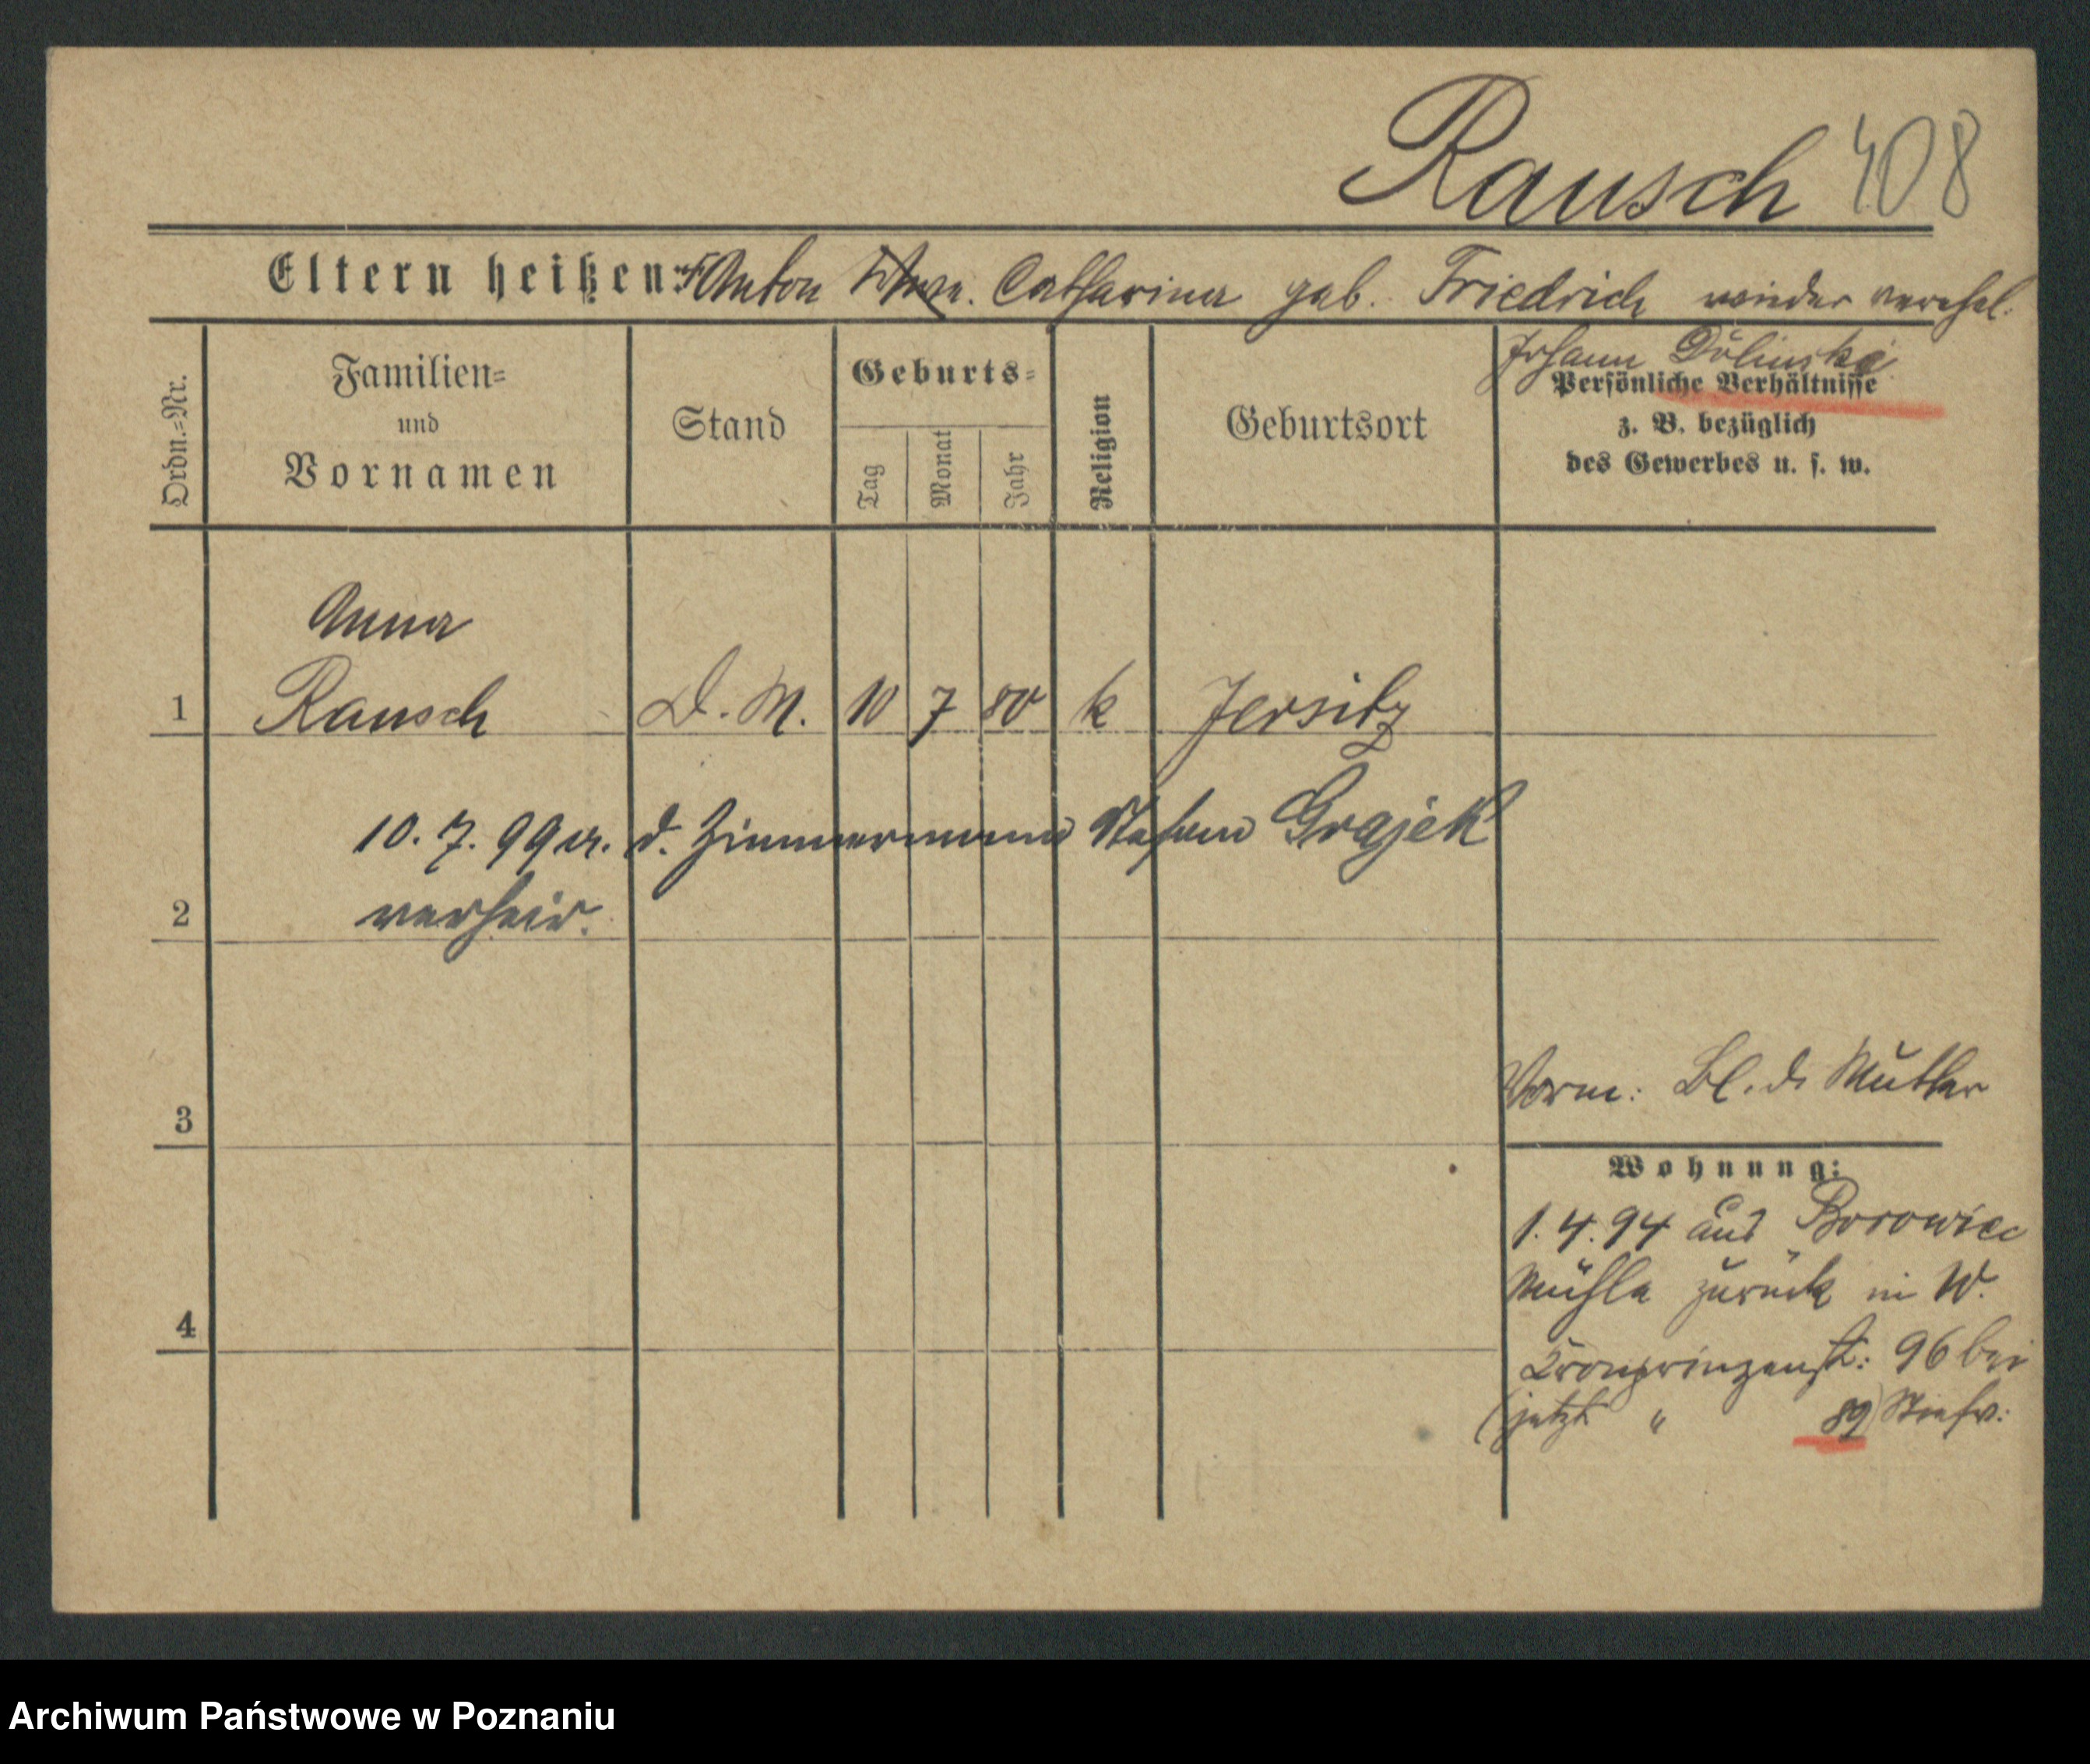 Rausch 408
Eltern heißen: Anton Catharina geb. Friedrich wieder verehel.
Johann Dolinski
Ordn.=Nr.
Familien=
und
Vornamen
Stand
Geburts=
Tag
Monat
Jahr
Religion
Geburtsort
Persönliche Verhältnisse
z. B. bezüglich
des Gewerbes u. s. w.
Anna
1 Rausch D. M. 10 7 80 k Jersitz
10. 7. 99 d. Zimmermann Stefan Grajek
2 verheir.
3
Vorm: Bl. d. Mutter
Wohnung:
1. 4. 94 aus Borowiec
Mühle zurück in W.
4
Kronprinzenst: 96 bei
(jetzt " 89) Stiefv:
Archiwum Państwowe w Poznaniu